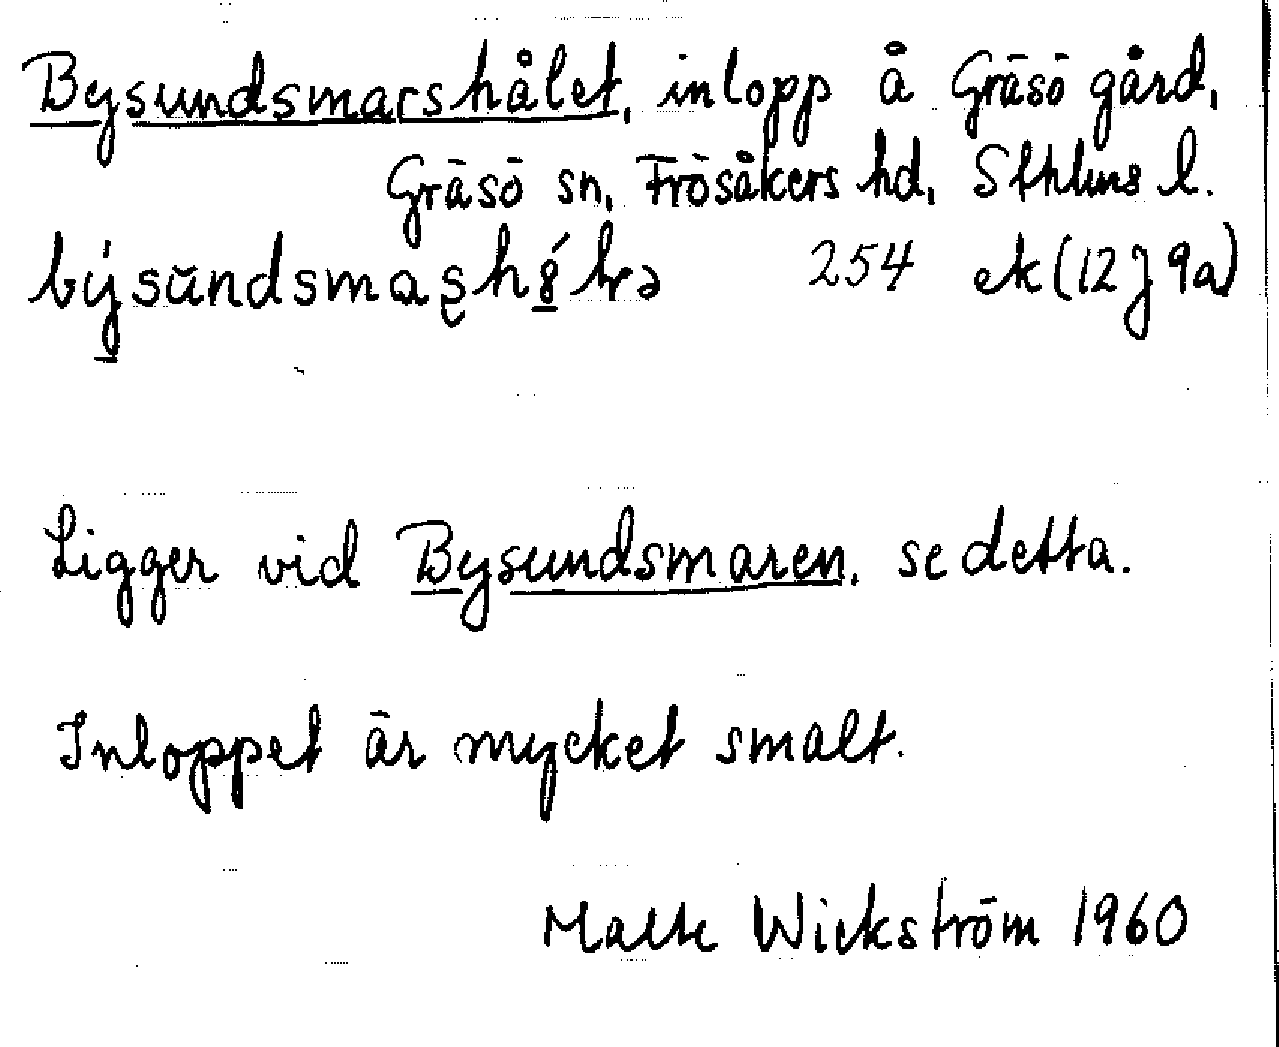 Bysundsmarshålet, inlopp å Gräsö gård,
Gräsö sn, Frösåkers hd, Sthlms l.
254 ek (12J 9a)
Ligger vid Bysundsmaren, se detta.
Inloppet är mycket smalt.
Malte Wickström 1960